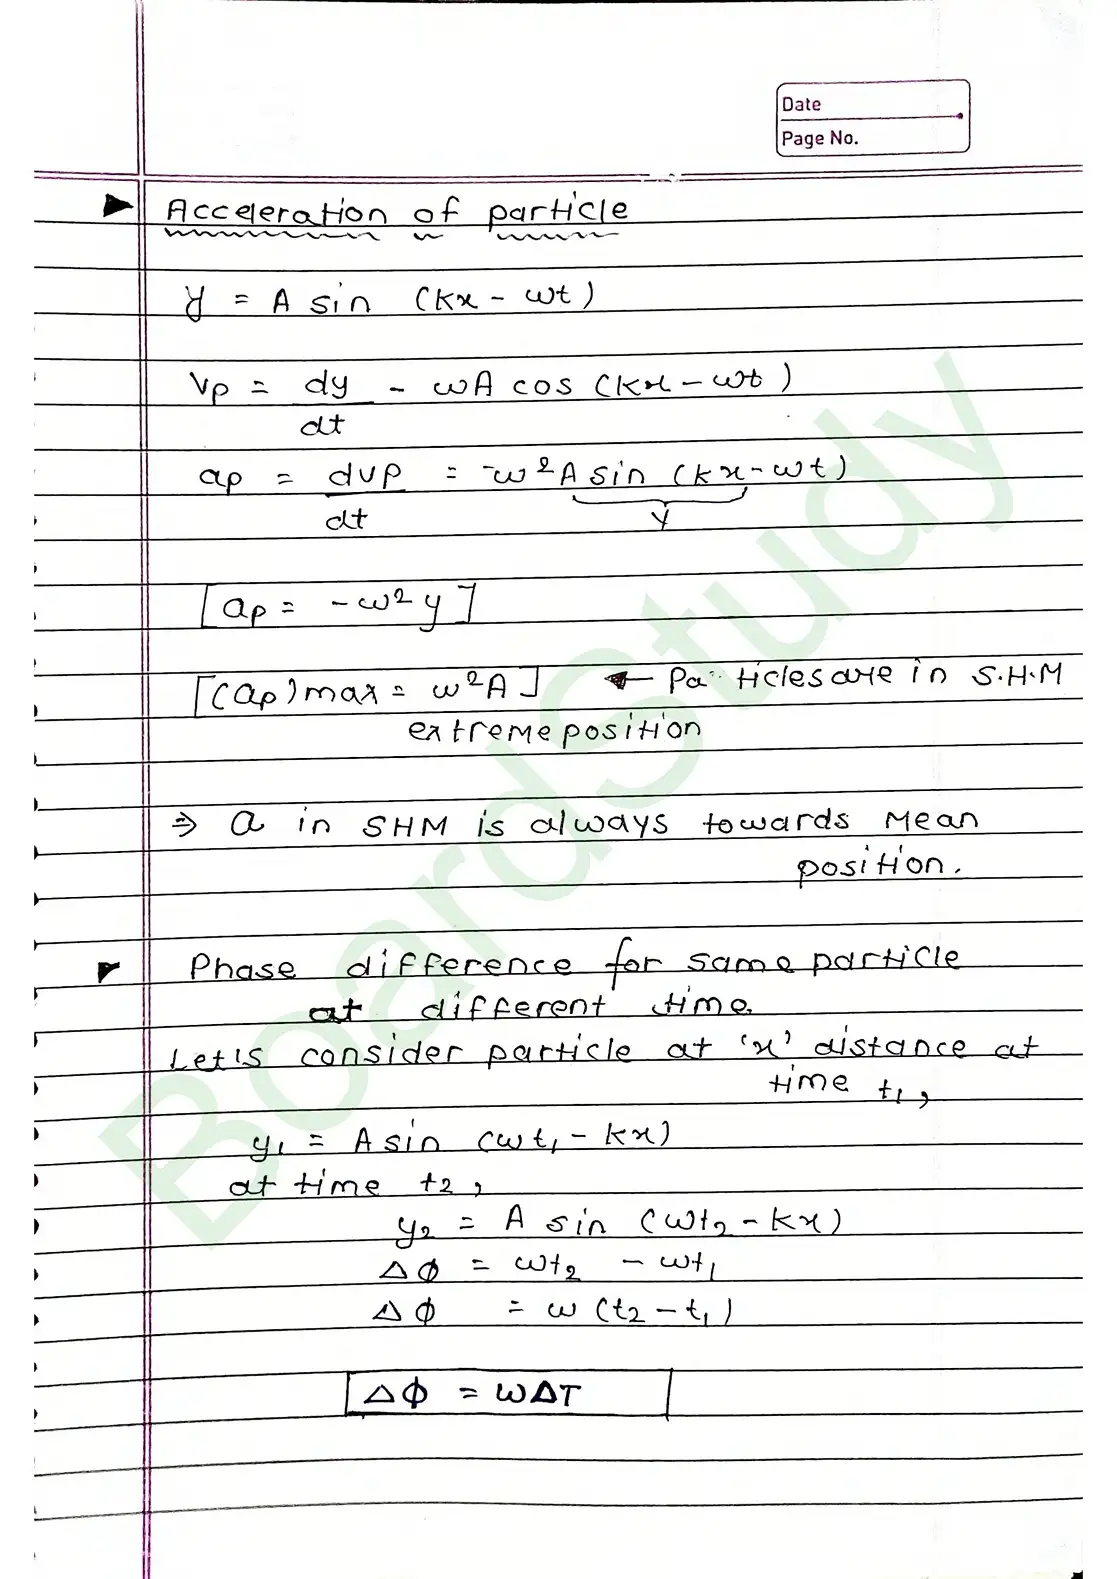 Date
Page No.
Acceleration of particle
y = A sin (kx - ωt)
Vp = dy/dt - ωA cos (kx - ωt)
ap = dvp/dt = -ω²A sin (kx - ωt)
y
[ap = -ω²y]
[(ap)max = ω²A] ← Particles are in S.H.M
extreme position
⇒ a in SHM is always towards Mean
position.
Phase difference for same particle
at different time.
Let's consider particle at 'x' distance at
time t₁,
y₁ = A sin (ωt₁ - kx)
at time t₂,
y₂ = A sin (ωt₂ - kx)
Δϕ = ωt₂ - ωt₁
Δϕ = ω (t₂ - t₁)
Δϕ = ωΔT
BoardStudy